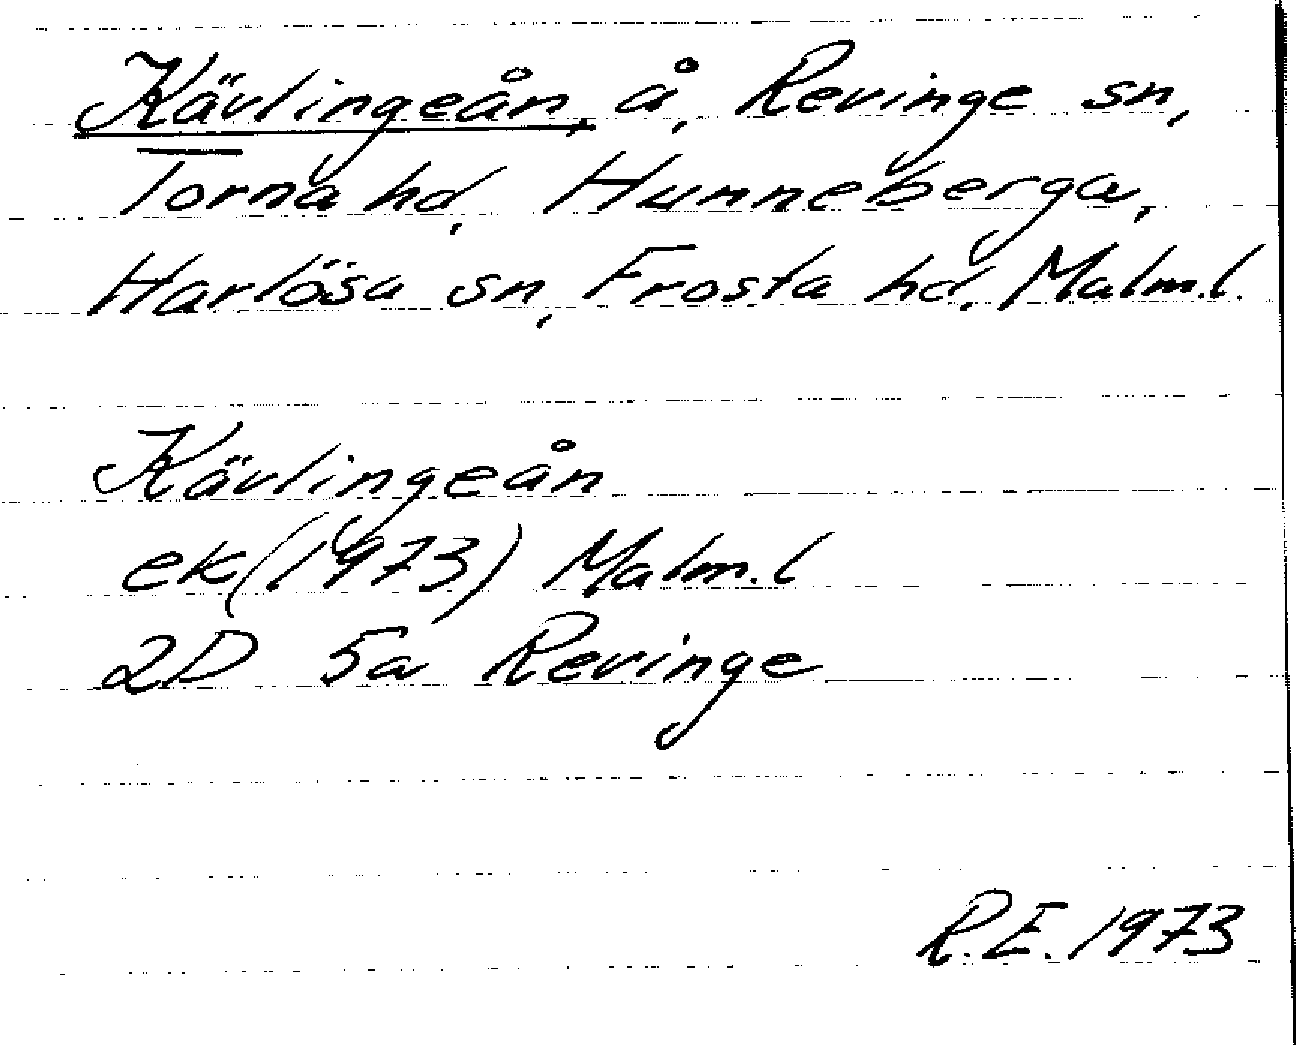 Kävlingeån, å, Revinge sn,
Torna hd, Hunneberga,
Harlösa sn, Frosta hd, Malm.l.
Kävlingeån
ek (1973) Malm.l
2D 5a Revinge
R.E. 1973